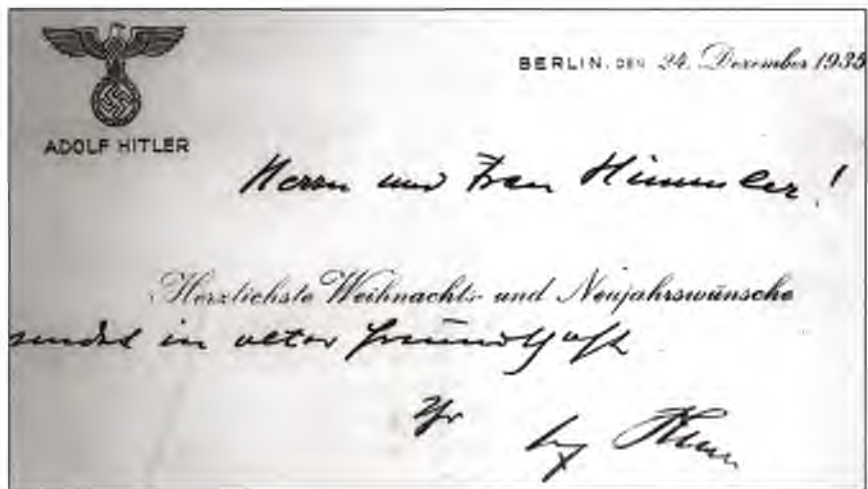 BERLIN, DEN 24. Dezember 1935
ADOLF HITLER
Herrn und Frau Himmler!
Herzlichste Weihnachts- und Neujahrswünsche
sendet in alter Freundschaft
Ihr